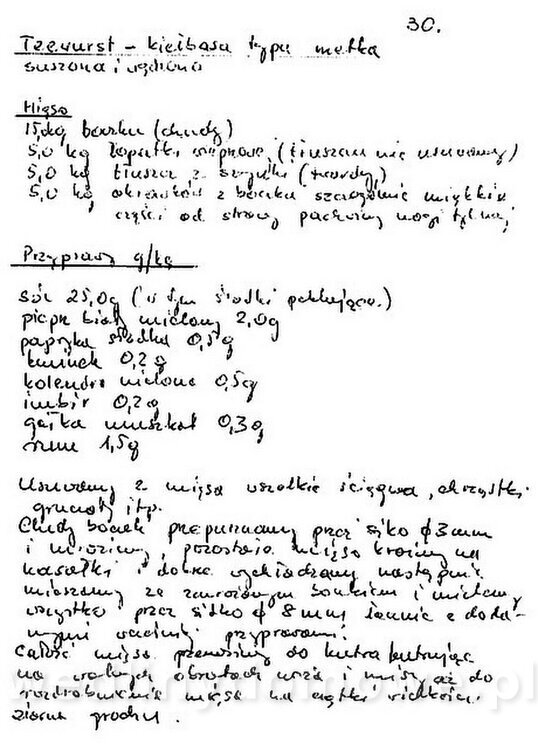 30.
Teewurst – kiełbasa typu metka
suszona i wędzona
Mięso
15,0kg boczku (chudy)
5,0 kg łopatki wieprzowej (tłuszczu nie usuwamy)
5,0 kg tłuszcz z (twardy)
5,0 kg okrawków z boczku szczególnie miękkie
części od strony pachwiny nogi tylnej
Przyprawy g/kg
sól 25,0g (w tym środki peklujące)
pieprz biały mielony 2,0g
papryka słodka 0,5g
kminek 0,2g
kolendra mielona 0,5g
imbir 0,2g
gałka muszkat 0,3g
rum 1,5g
Usuwamy z mięsa wszelkie ścięgna, chrząstki
gruczoły itp.
Chudy boczek przepuszczamy przez sitko φ 3mm
i mrozimy, pozostałe mięso kroimy na
kawałki i dobrze wychładzamy następnie
mieszamy ze zamrożonym boczkiem i mielemy
wszystko przez sitko φ 8mm, łącznie z doda-
nymi wcześniej przyprawami.
Całość mięsa przenosimy do kutra kutrując
na wolnych obrotach noża i misy aż do
rozdrobnienia mięsa na cząstki wielkości
ziarna grochu.